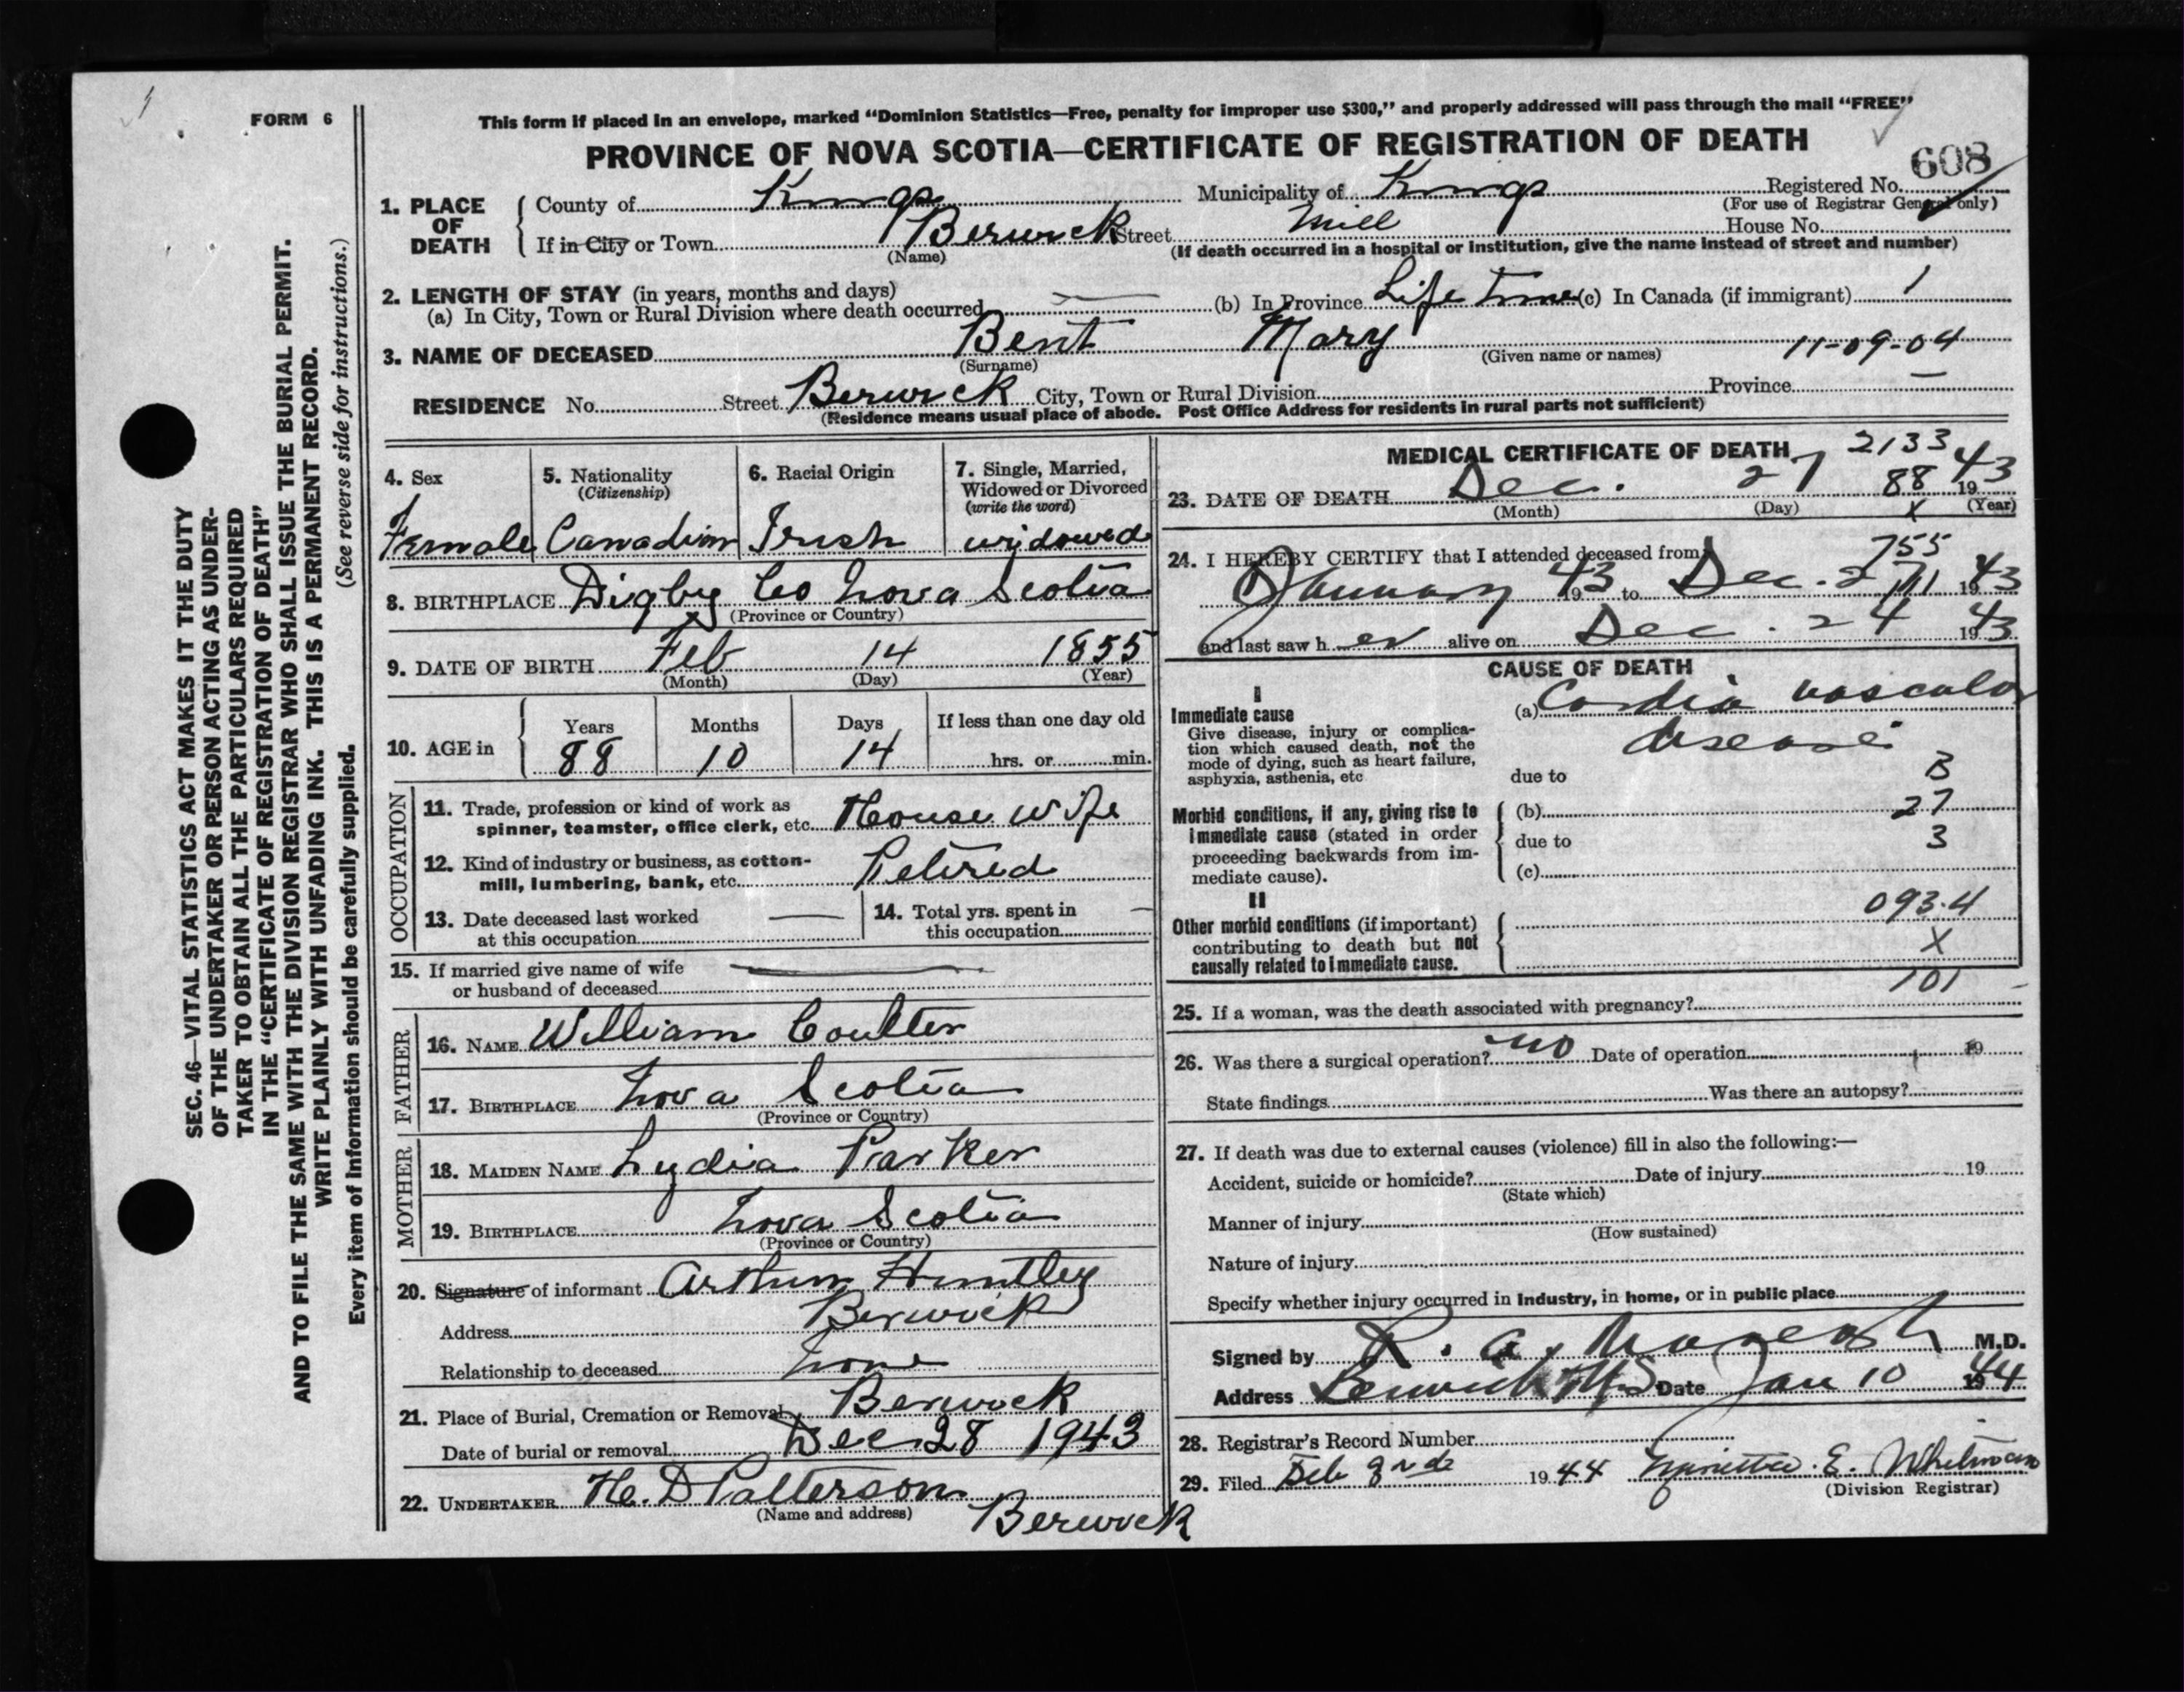 FORM 6
This form if placed in an envelope, marked "Dominion Statistics—Free, penalty for improper use $300," and properly addressed will pass through the mail "FREE"
PROVINCE OF NOVA SCOTIA—CERTIFICATE OF REGISTRATION OF DEATH
608
1. PLACE OF DEATH
County of Kings Municipality of Kings Registered No.
(For use of Registrar General only)
If in City or Town Berwick Street Mill House No.
(Name) (If death occurred in a hospital or institution, give the name instead of street and number)
2. LENGTH OF STAY (in years, months and days)
(a) In City, Town or Rural Division where death occurred — (b) In Province Life time (c) In Canada (if immigrant) 1
3. NAME OF DECEASED Bent Mary 11-09-04
(Surname) (Given name or names)
RESIDENCE No. Street Berwick City, Town or Rural Division Province —
(Residence means usual place of abode. Post Office Address for residents in rural parts not sufficient)
SEC. 46—VITAL STATISTICS ACT MAKES IT THE DUTY
OF THE UNDERTAKER OR PERSON ACTING AS UNDER-
TAKER TO OBTAIN ALL THE PARTICULARS REQUIRED
IN THE "CERTIFICATE OF REGISTRATION OF DEATH"
AND TO FILE THE SAME WITH THE DIVISION REGISTRAR WHO SHALL ISSUE THE BURIAL PERMIT.
WRITE PLAINLY WITH UNFADING INK. THIS IS A PERMANENT RECORD.
Every item of information should be carefully supplied. (See reverse side for instructions.)
4. Sex
Female
5. Nationality
(Citizenship)
Canadian
6. Racial Origin
Irish
7. Single, Married,
Widowed or Divorced
(write the word)
widowed
8. BIRTHPLACE Digby Co Nova Scotia
(Province or Country)
9. DATE OF BIRTH Feb 14 1855
(Month) (Day) (Year)
10. AGE in
Years Months Days If less than one day old
88 10 14 hrs. or min.
OCCUPATION
11. Trade, profession or kind of work as
spinner, teamster, office clerk, etc. House wife
12. Kind of industry or business, as cotton-
mill, lumbering, bank, etc. Retired
13. Date deceased last worked
at this occupation —
14. Total yrs. spent in
this occupation —
15. If married give name of wife
or husband of deceased —
FATHER
16. NAME William Coulter
17. BIRTHPLACE Nova Scotia
(Province or Country)
MOTHER
18. MAIDEN NAME Lydia Parker
19. BIRTHPLACE Nova Scotia
(Province or Country)
20. Signature of informant Arthur Huntley
Address Berwick
Relationship to deceased none
21. Place of Burial, Cremation or Removal Berwick
Date of burial or removal Dec 28 1943
22. UNDERTAKER H. D Patterson
(Name and address) Berwick
MEDICAL CERTIFICATE OF DEATH 2133
23. DATE OF DEATH Dec. 27 88 1943
(Month) (Day) X (Year)
24. I HEREBY CERTIFY that I attended deceased from 755
January 1943 to Dec. 27 1943
and last saw h er alive on Dec. 24 1943
CAUSE OF DEATH
I
Immediate cause
Give disease, injury or complica-
tion which caused death, not the
mode of dying, such as heart failure,
asphyxia, asthenia, etc
(a) Cardio vascular
disease
due to B
Morbid conditions, if any, giving rise to
immediate cause (stated in order
proceeding backwards from im-
mediate cause).
(b) 27
due to 3
(c)
II
Other morbid conditions (if important)
contributing to death but not
causally related to immediate cause.
093.4
X
101
25. If a woman, was the death associated with pregnancy?
26. Was there a surgical operation? no Date of operation 19
State findings Was there an autopsy?
27. If death was due to external causes (violence) fill in also the following:—
Accident, suicide or homicide? Date of injury 19
(State which)
Manner of injury
(How sustained)
Nature of injury
Specify whether injury occurred in industry, in home, or in public place
Signed by R. A. M.D.
Address Berwick N.S. Date Jan 10 1944
28. Registrar's Record Number
29. Filed Feb 1944 E. Whitman
(Division Registrar)